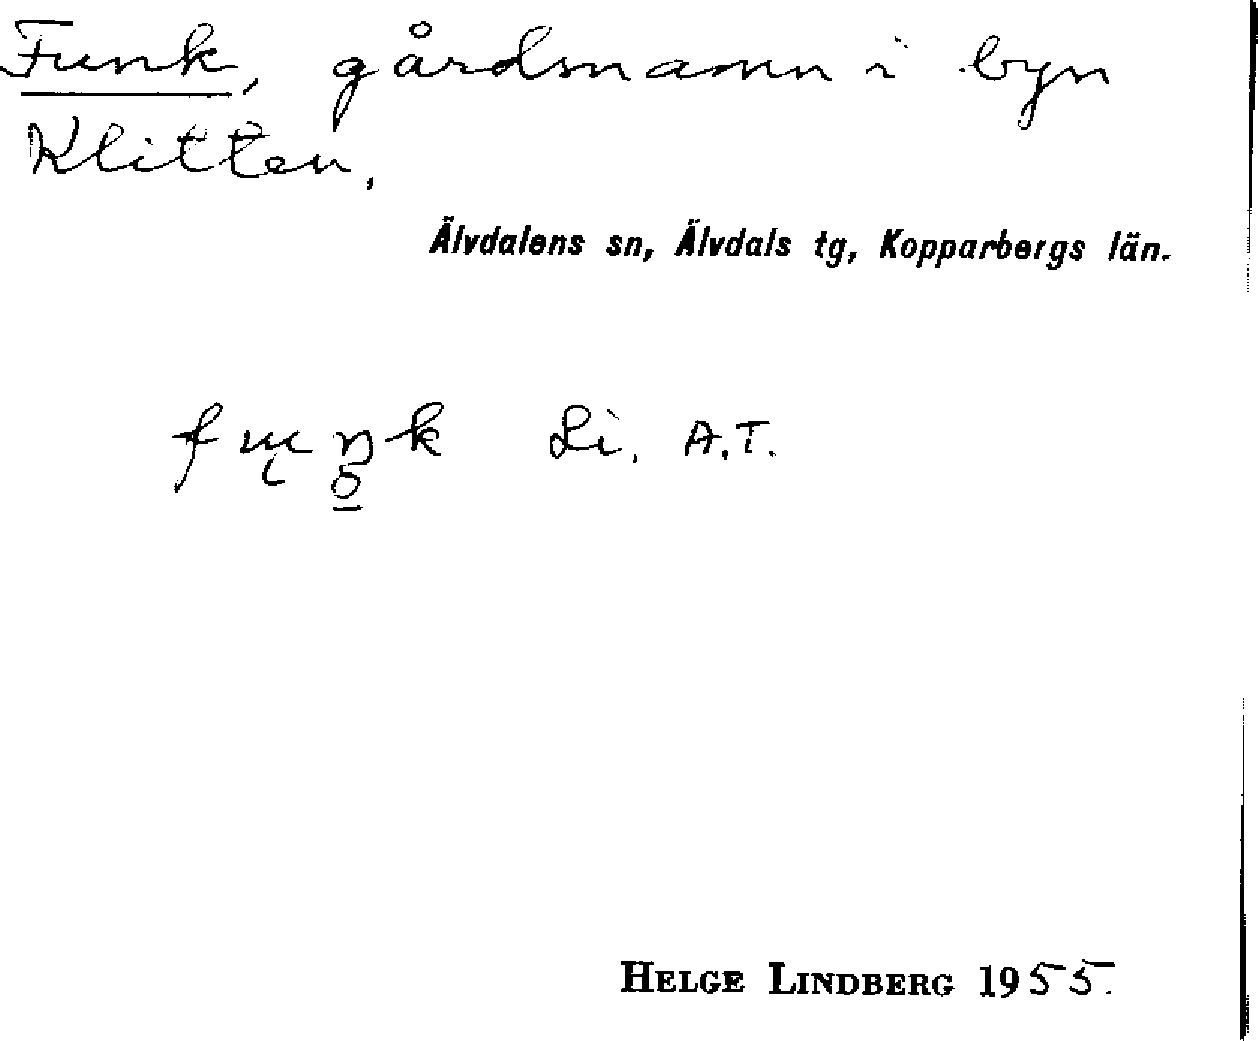 Funk, gårdsnamn i byn
Klitten.
Älvdalens sn, Älvdals tg, Kopparbergs län.
Li. A.T.
HELGE LINDBERG 1955.